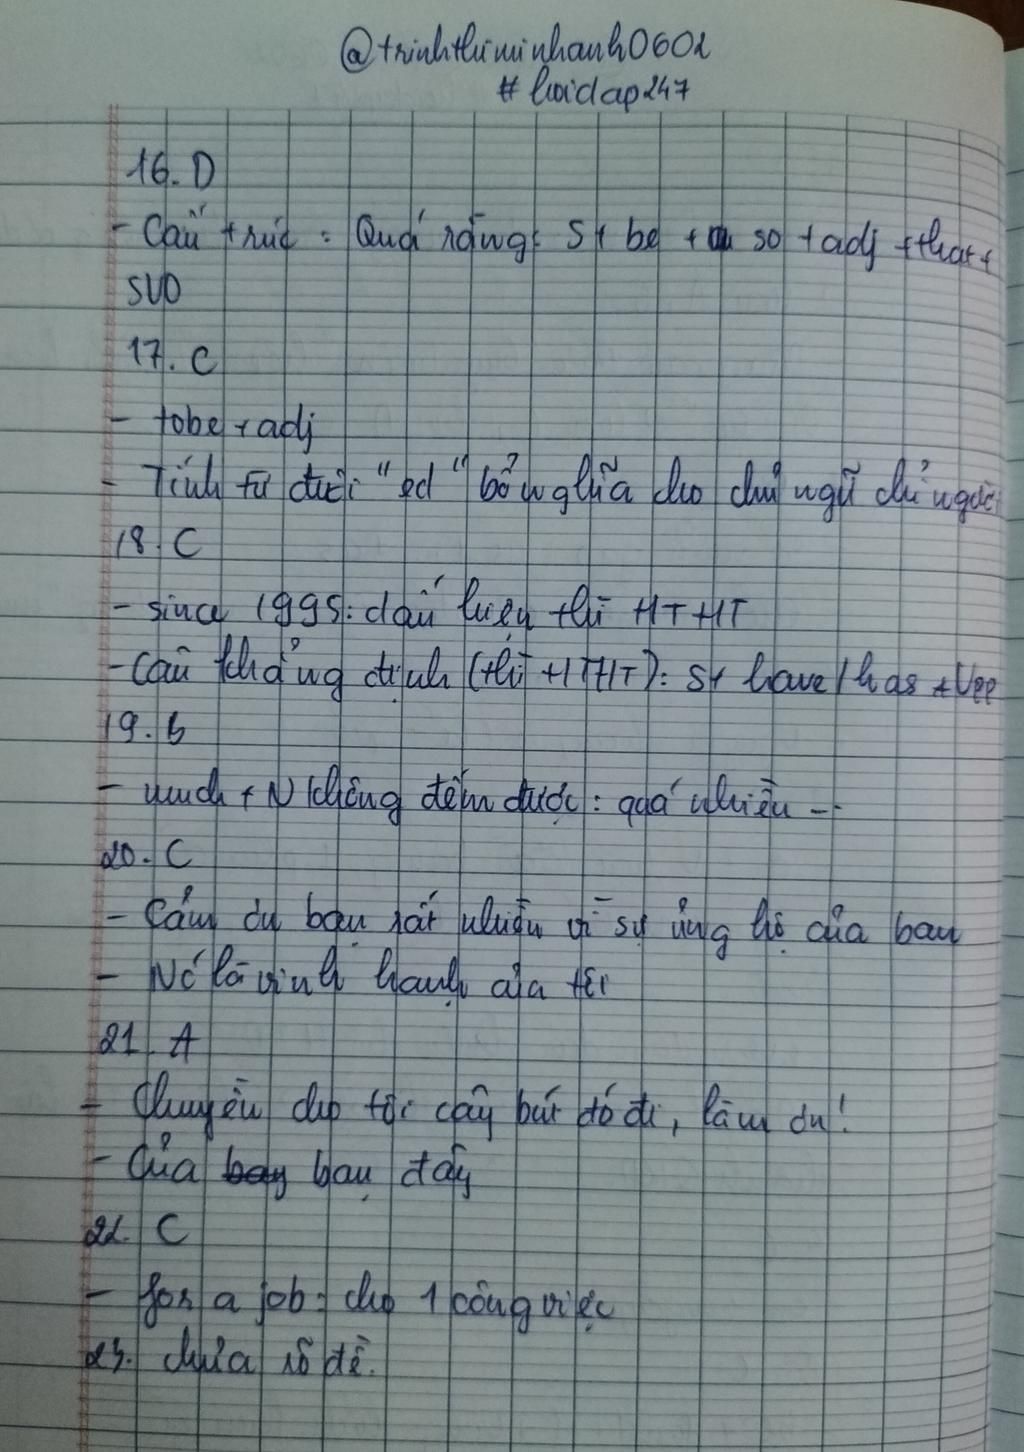 @trinhthiminhanh0602
#hoidap247
16. D
- Cấu trúc: Quá rằng: S+ be + so + adj + that +
SVO
17. C
- tobe + adj
- Tính từ đuôi "ed" bổ nghĩa cho chủ ngữ chỉ người
18. C
- since 1995: dấu hiệu thì HTHT
- Câu khẳng định (thì HTHT): S+ have/has + Vpp
19. b
- much + N không đếm được: quá nhiều --
20. C
- Cảm ơn bạn rất nhiều vì sự ủng hộ của bạn
- Nó là vinh hạnh của tôi
21. A
- Chuyền cho tôi cây bút đó đi, làm ơn!
- Của bạn đây
22. C
- for a job: cho 1 công việc
23. chưa rõ đề.